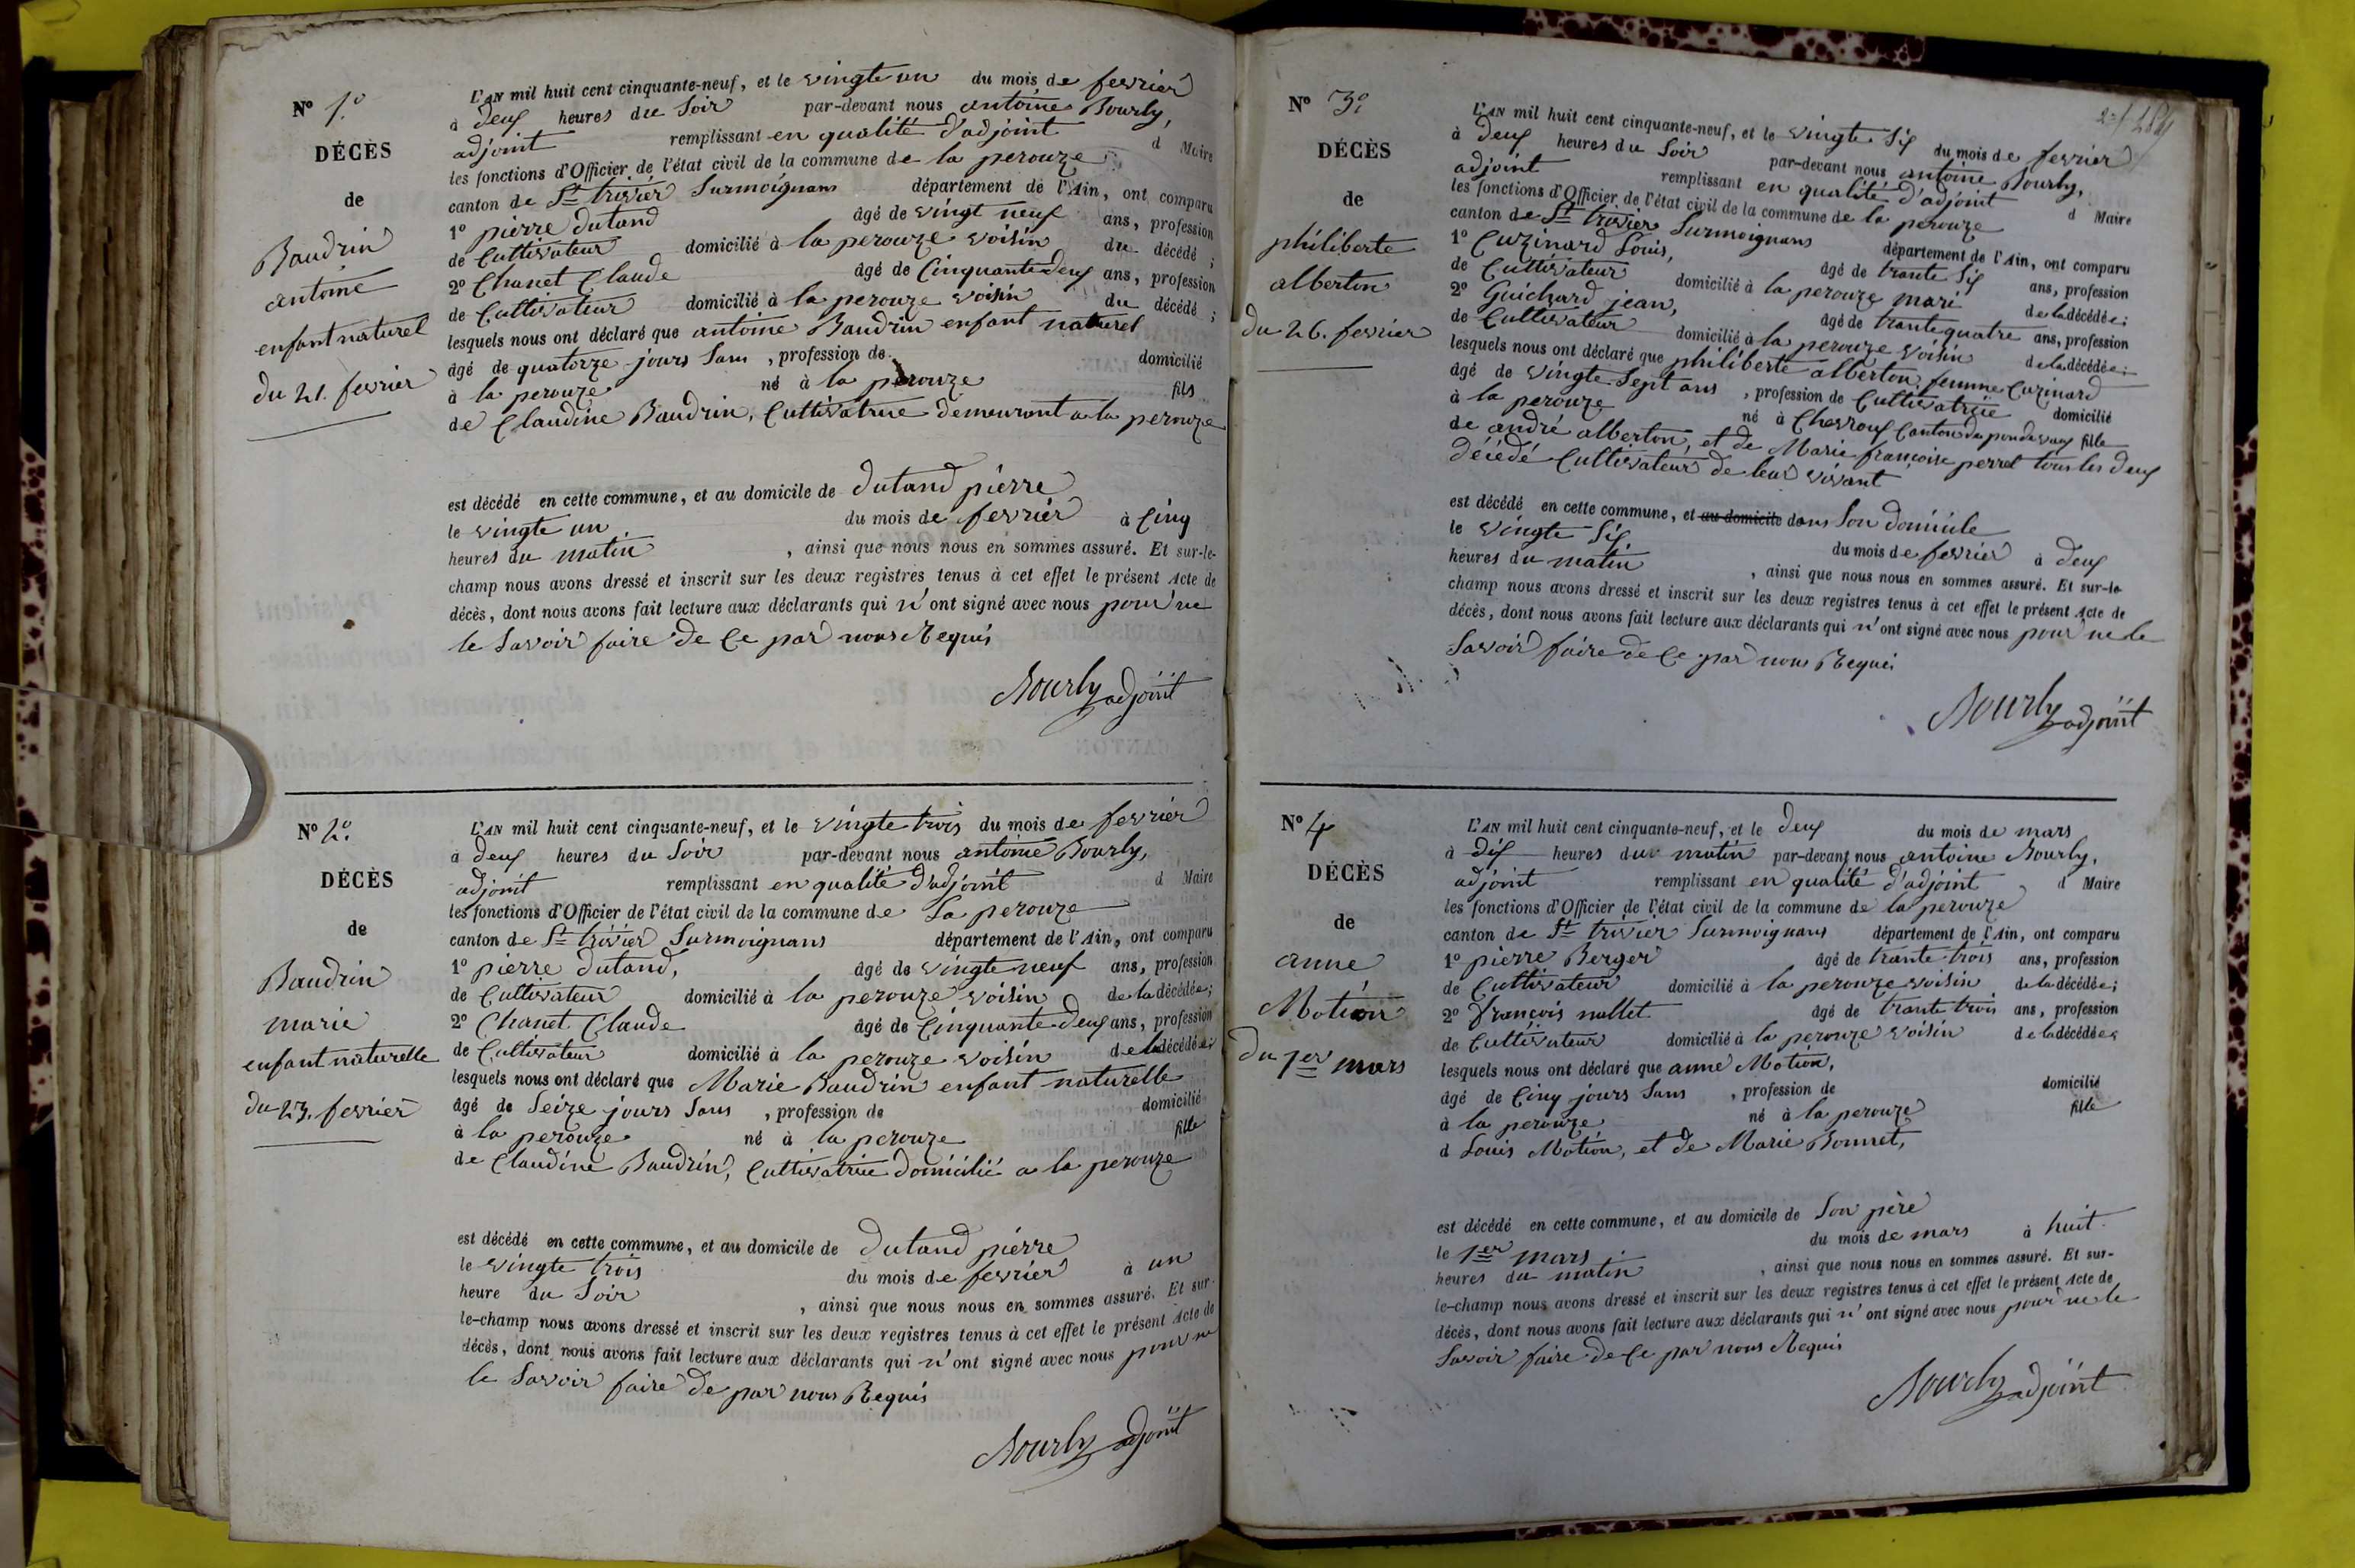 N° 1°
DÉCÈS
de
Baudrin
antoine
enfant naturel
du 21. fevrier
L'AN mil huit cent cinquante-neuf, et le vingte un du mois de fevrier
à deux heures du Soir par-devant nous antoine Bourly,
adjoint remplissant en qualité d'adjoint d Maire
les fonctions d'Officier de l'état civil de la commune de la perouze
canton de St trivier Surmoignans département de l'Ain, ont comparu
1° pierre dutand âgé de vingt neuf ans, profession
de Cultivateur domicilié à la perouze voisin du décédé ;
2° Chanet Claude âgé de Cinquante deux ans, profession
de Cultivateur domicilié à la perouze voisin du décédé ;
lesquels nous ont déclaré que antoine Baudrin enfant naturel
âgé de quatorze jours Sans , profession de domicilié
à la perouze né à la perouze fils
de Claudine Baudrin, Cultivatrice demeurant a la perouze
est décédé en cette commune, et au domicile de dutand pierre
le vingte un du mois de fevrier à Cinq
heures du matin , ainsi que nous nous en sommes assuré. Et sur-le-
champ nous avons dressé et inscrit sur les deux registres tenus à cet effet le présent Acte de
décès, dont nous avons fait lecture aux déclarants qui n'ont signé avec nous pour ne
le Savoir faire de Ce par nous Requis
Bourly adjoint
N° 2°
DÉCÈS
de
Baudrin
marie
enfant naturelle
du 23. fevrier
L'AN mil huit cent cinquante-neuf, et le vingte trois du mois de fevrier
à deux heures du Soir par-devant nous antoine Bourly,
adjoint remplissant en qualité d'adjoint d Maire
les fonctions d'Officier de l'état civil de la commune de La perouze
canton de St trivier Surmoignans département de l'Ain, ont comparu
1° pierre dutand, âgé de vingte neuf ans, profession
de Cultivateur domicilié à la perouze voisin de la décédée ;
2° Chanet Claude âgé de Cinquante deux ans, profession
de Cultivateur domicilié à la perouze voisin de la décédée ;
lesquels nous ont déclaré que Marie Baudrin enfant naturelle
âgé de Seize jours Sans , profession de domicilié
à la perouze né à la perouze fille
de Claudine Baudrin, Cultivatrice domicilié a la perouze
est décédé en cette commune, et au domicile de dutand pierre
le vingte trois du mois de fevrier à un
heure du Soir , ainsi que nous nous en sommes assuré. Et sur-
le-champ nous avons dressé et inscrit sur les deux registres tenus à cet effet le présent Acte de
décès, dont nous avons fait lecture aux déclarants qui n'ont signé avec nous pour ne
le Savoir faire de par nous Requis
Bourly adjoint
284
N° 3°
DÉCÈS
de
philiberte
alberton
du 26. fevrier
L'AN mil huit cent cinquante-neuf, et le vingte Six du mois de fevrier
à deux heures du Soir par-devant nous antoine Bourly,
adjoint remplissant en qualité d'adjoint d Maire
les fonctions d'Officier de l'état civil de la commune de la perouze
canton de St trivier Surmoignans département de l'Ain, ont comparu
1° Cuzinard Louis, âgé de trante Six ans, profession
de Cultivateur domicilié à la perouze mari de la décédée ;
2° Guichard jean, âgé de trante quatre ans, profession
de Cultivateur domicilié à la perouze voisin de la décédée ;
lesquels nous ont déclaré que philiberte alberton, femme Cuzinard
âgé de vingte Sept ans , profession de Cultivatrice domicilié
à la perouze né à Chevroux Canton du pondevaux fille
de andré alberton, et de Marie françoise perret tous les deux
décédé Cultivateur de leur vivant
est décédé en cette commune, et au domicile dans Son domicile
le vingte Six du mois de fevrier à deux
heures du matin , ainsi que nous nous en sommes assuré. Et sur-le-
champ nous avons dressé et inscrit sur les deux registres tenus à cet effet le présent Acte de
décès, dont nous avons fait lecture aux déclarants qui n'ont signé avec nous pour ne le
Savoir faire de Ce par nous Requi
Bourly adjoint
N° 4
DÉCÈS
de
anne
Motion
du 1er mars
L'AN mil huit cent cinquante-neuf, et le deux du mois de mars
à dix heures du matin par-devant nous antoine Bourly,
adjoint remplissant en qualité d'adjoint d Maire
les fonctions d'Officier de l'état civil de la commune de la perouze
canton de St trivier Surmoignans département de l'Ain, ont comparu
1° pierre Berger âgé de trante trois ans, profession
de Cultivateur domicilié à la perouze voisin de la décédée ;
2° François nallet âgé de trante trois ans, profession
de Cultivateur domicilié à la perouze voisin de la décédée ;
lesquels nous ont déclaré que anne Motion,
âgé de Cinq jours Sans , profession de domicilié
à la perouze né à la perouze fille
d Louis Motion, et de Marie Bonnet,
est décédé en cette commune, et au domicile de Son père
le 1er mars du mois de mars à huit
heures du matin , ainsi que nous nous en sommes assuré. Et sur-
le-champ nous avons dressé et inscrit sur les deux registres tenus à cet effet le présent Acte de
décès, dont nous avons fait lecture aux déclarants qui n'ont signé avec nous pour ne le
Savoir faire de Ce par nous Requis
Bourly adjoint